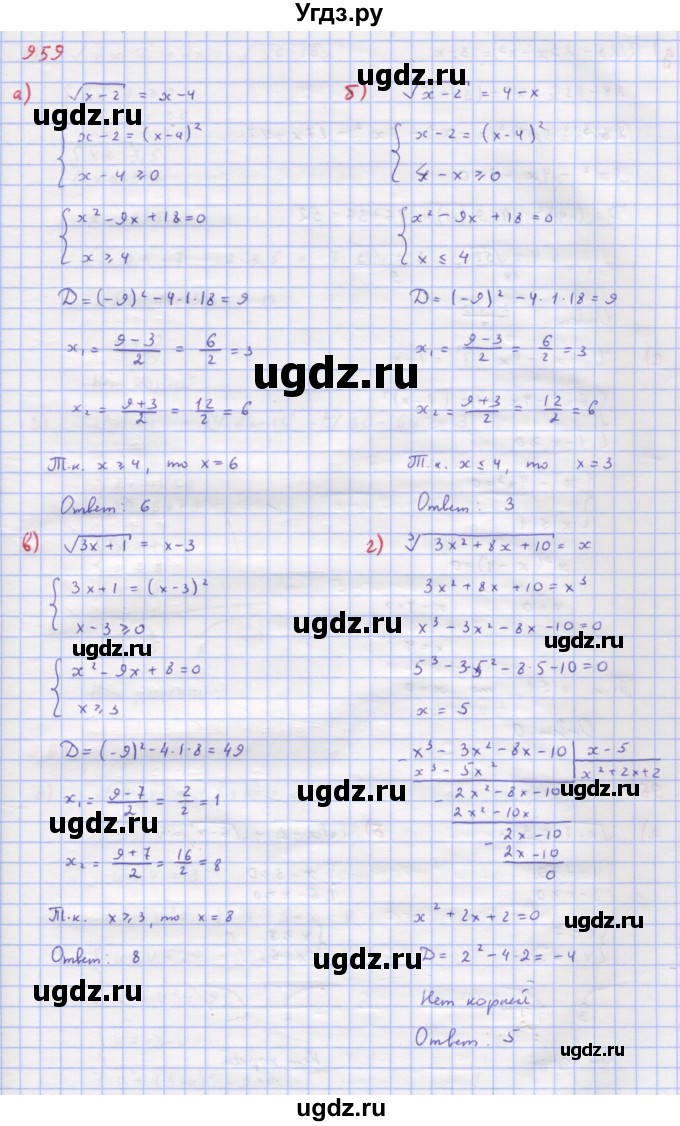 Угдз.ру
959
а) √x-2 = x-4
{ x-2 = (x-4)²
x-4 ≥ 0
{ x²-9x+18=0
x ≥ 4
D = (-9)²-4·1·18 = 9
x₁ = 9-3/2 = 6/2 = 3
x₂ = 9+3/2 = 12/2 = 6
Т.к. x ≥ 4, то x=6
Ответ: 6
б) √x-2 = 4-x
{ x-2 = (x-4)²
4-x ≥ 0
{ x²-9x+18=0
x ≤ 4
D = (-9)²-4·1·18 = 9
x₁ = 9-3/2 = 6/2 = 3
x₂ = 9+3/2 = 12/2 = 6
Т.к. x ≤ 4, то x=3
Ответ: 3
в) √3x+1 = x-3
{ 3x+1 = (x-3)²
x-3 ≥ 0
{ x²-9x+8=0
x ≥ 3
D = (-9)²-4·1·8 = 49
x₁ = 9-7/2 = 2/2 = 1
x₂ = 9+7/2 = 16/2 = 8
Т.к. x ≥ 3, то x=8
Ответ: 8
г) ³√3x²+8x+10 = x
3x²+8x+10 = x³
x³-3x²-8x-10=0
5³-3·5²-8·5-10=0
x = 5
x³-3x²-8x-10 | x-5
x³-5x² | x²+2x+2
2x²-8x-10
2x²-10x
2x-10
2x-10
0
x²+2x+2=0
D = 2²-4·2 = -4
Нет корней
Ответ: 5
ugdz.ru
ugdz.ru
ugdz.ru
ugdz.ru
ugdz.ru
ugdz.ru
ugdz.ru
ugdz.ru
ugdz.ru
ugdz.ru
ugdz.ru
ugdz.ru
ugdz.ru